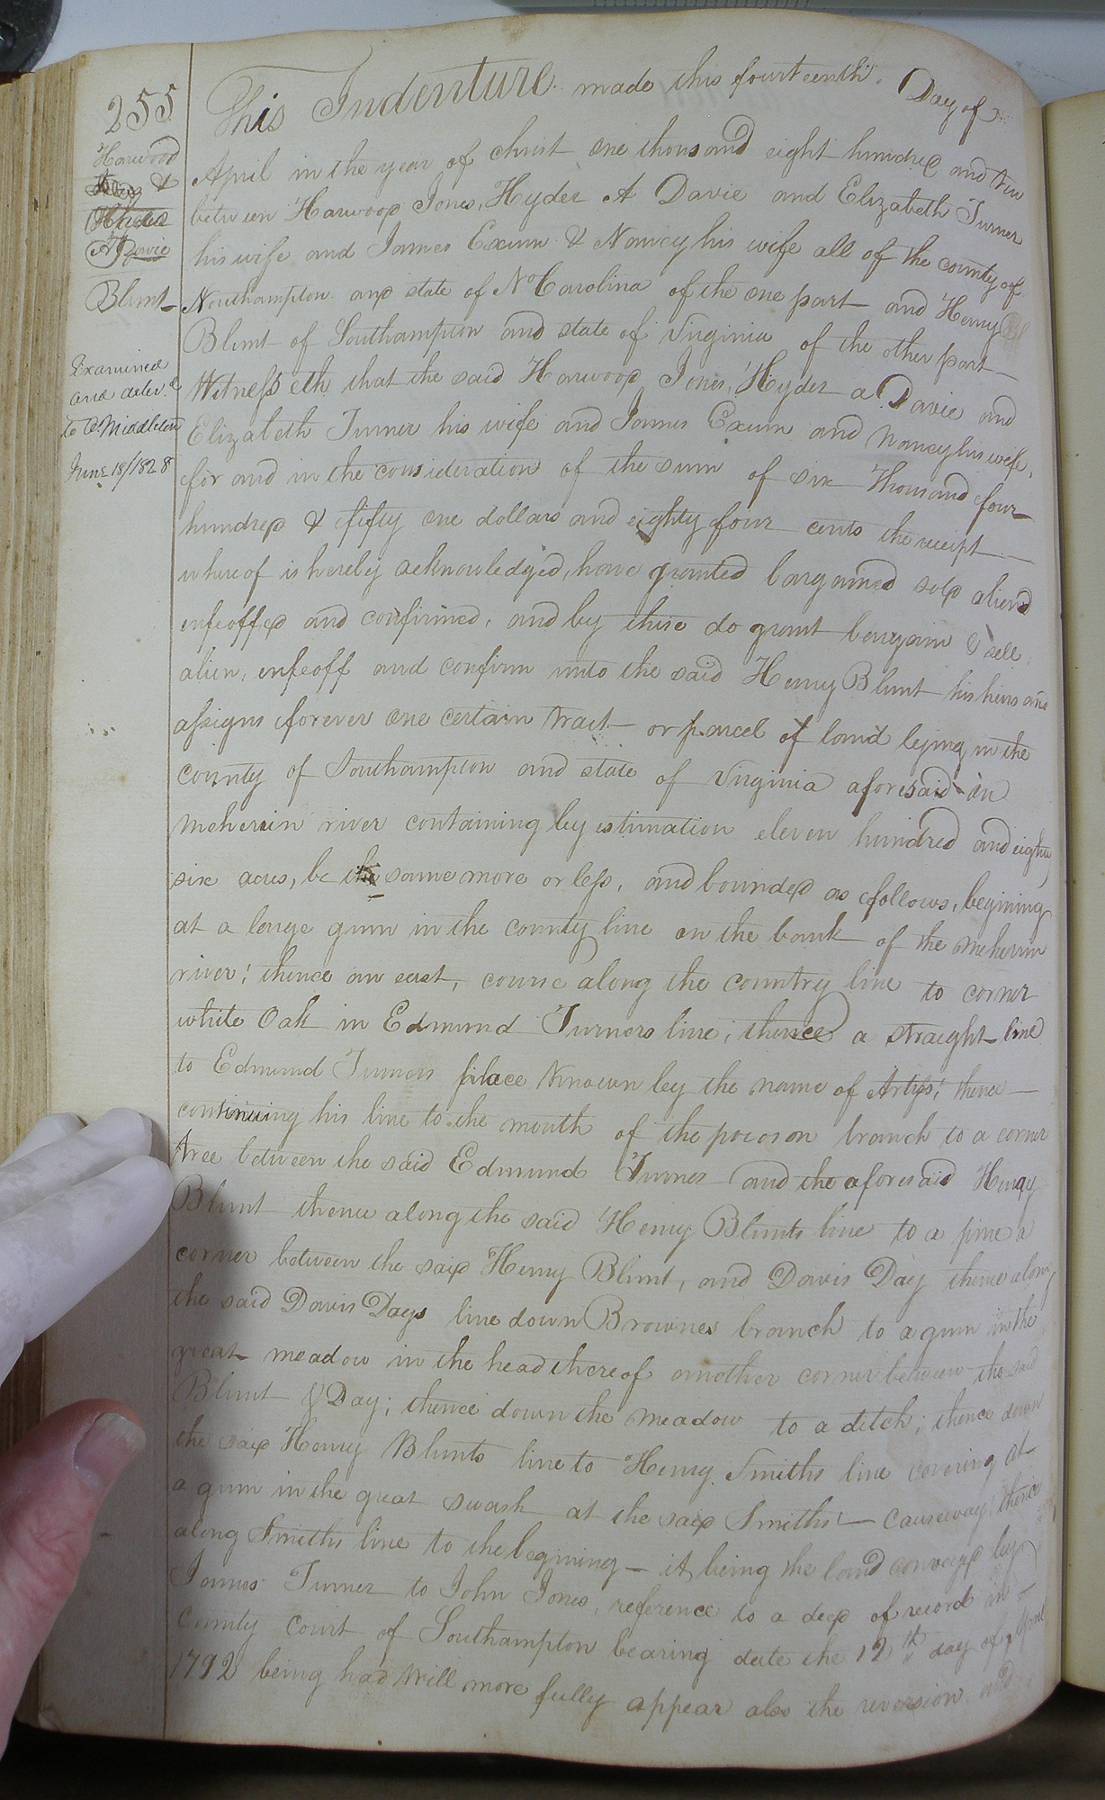 255
Harwood
&
Hyder
A Davie
Blunt
Examined
and deler.d
to Middleton
June 18/1828
This Indenture made this fourteenth Day of
April in the year of christ one thousand eight hundred and ten
between Harwood Jones, Hyder A Davie and Elizabeth Turner
his wife and James Exum & Nancy his wife all of the county of
Northampton and state of N Carolina of the one part and Henry
Blunt of Southampton and state of Virginia of the other part
Witnesseth that the said Harwood Jones, Hyder a Davie and
Elizabeth Turner his wife and James Exum and Nancy his wife,
for and in the consideration of the sum of six Thousand four
hundred & fifty one dollars and eighty four cents the receipt
whereof is hereby acknowledged, have granted bargained sold aliend
enfeoffed and confirmed, and by these do grant bargain & sell
alien, enfeoff and confirm unto the said Henry Blunt his heirs and
assigns forever one certain tract or parcel of land lying in the
county of Southampton and state of Virginia aforesaid on
Meherrin river containing by estimation eleven hundred and eighty
six acres, be the same more or less, and bounded as follows, begining
at a large gum in the county line on the bank of the Meherrin
river; thence an east, course along the country line to corner
white Oak in Edmund Turners line; thence a straight line
to Edmund Turners place known by the name of Artiss; thence
continuing his line to the mouth of the pocoson branch to a corner
tree between the said Edmund Turner and the aforesaid Henry
Blunt thence along the said Henry Blunts line to a pine a
corner between the said Henry Blunt, and Davis Day thence along
the said Davis Days line down Brownes branch to a gum in the
great meadow in the head thereof another corner between the said
Blunt & Day; thence down the meadow to a ditch; thence down
the said Henry Blunts line to Henry Smiths line corning at
a gum in the great swash at the said Smiths causeway; thence
along Smiths line to the begining - it being the land conveyed by
James Turner to John Jones, reference to a deed of record in
county court of Southampton bearing date the 12th day of April
1792 being had will more fully appear also the reversion and